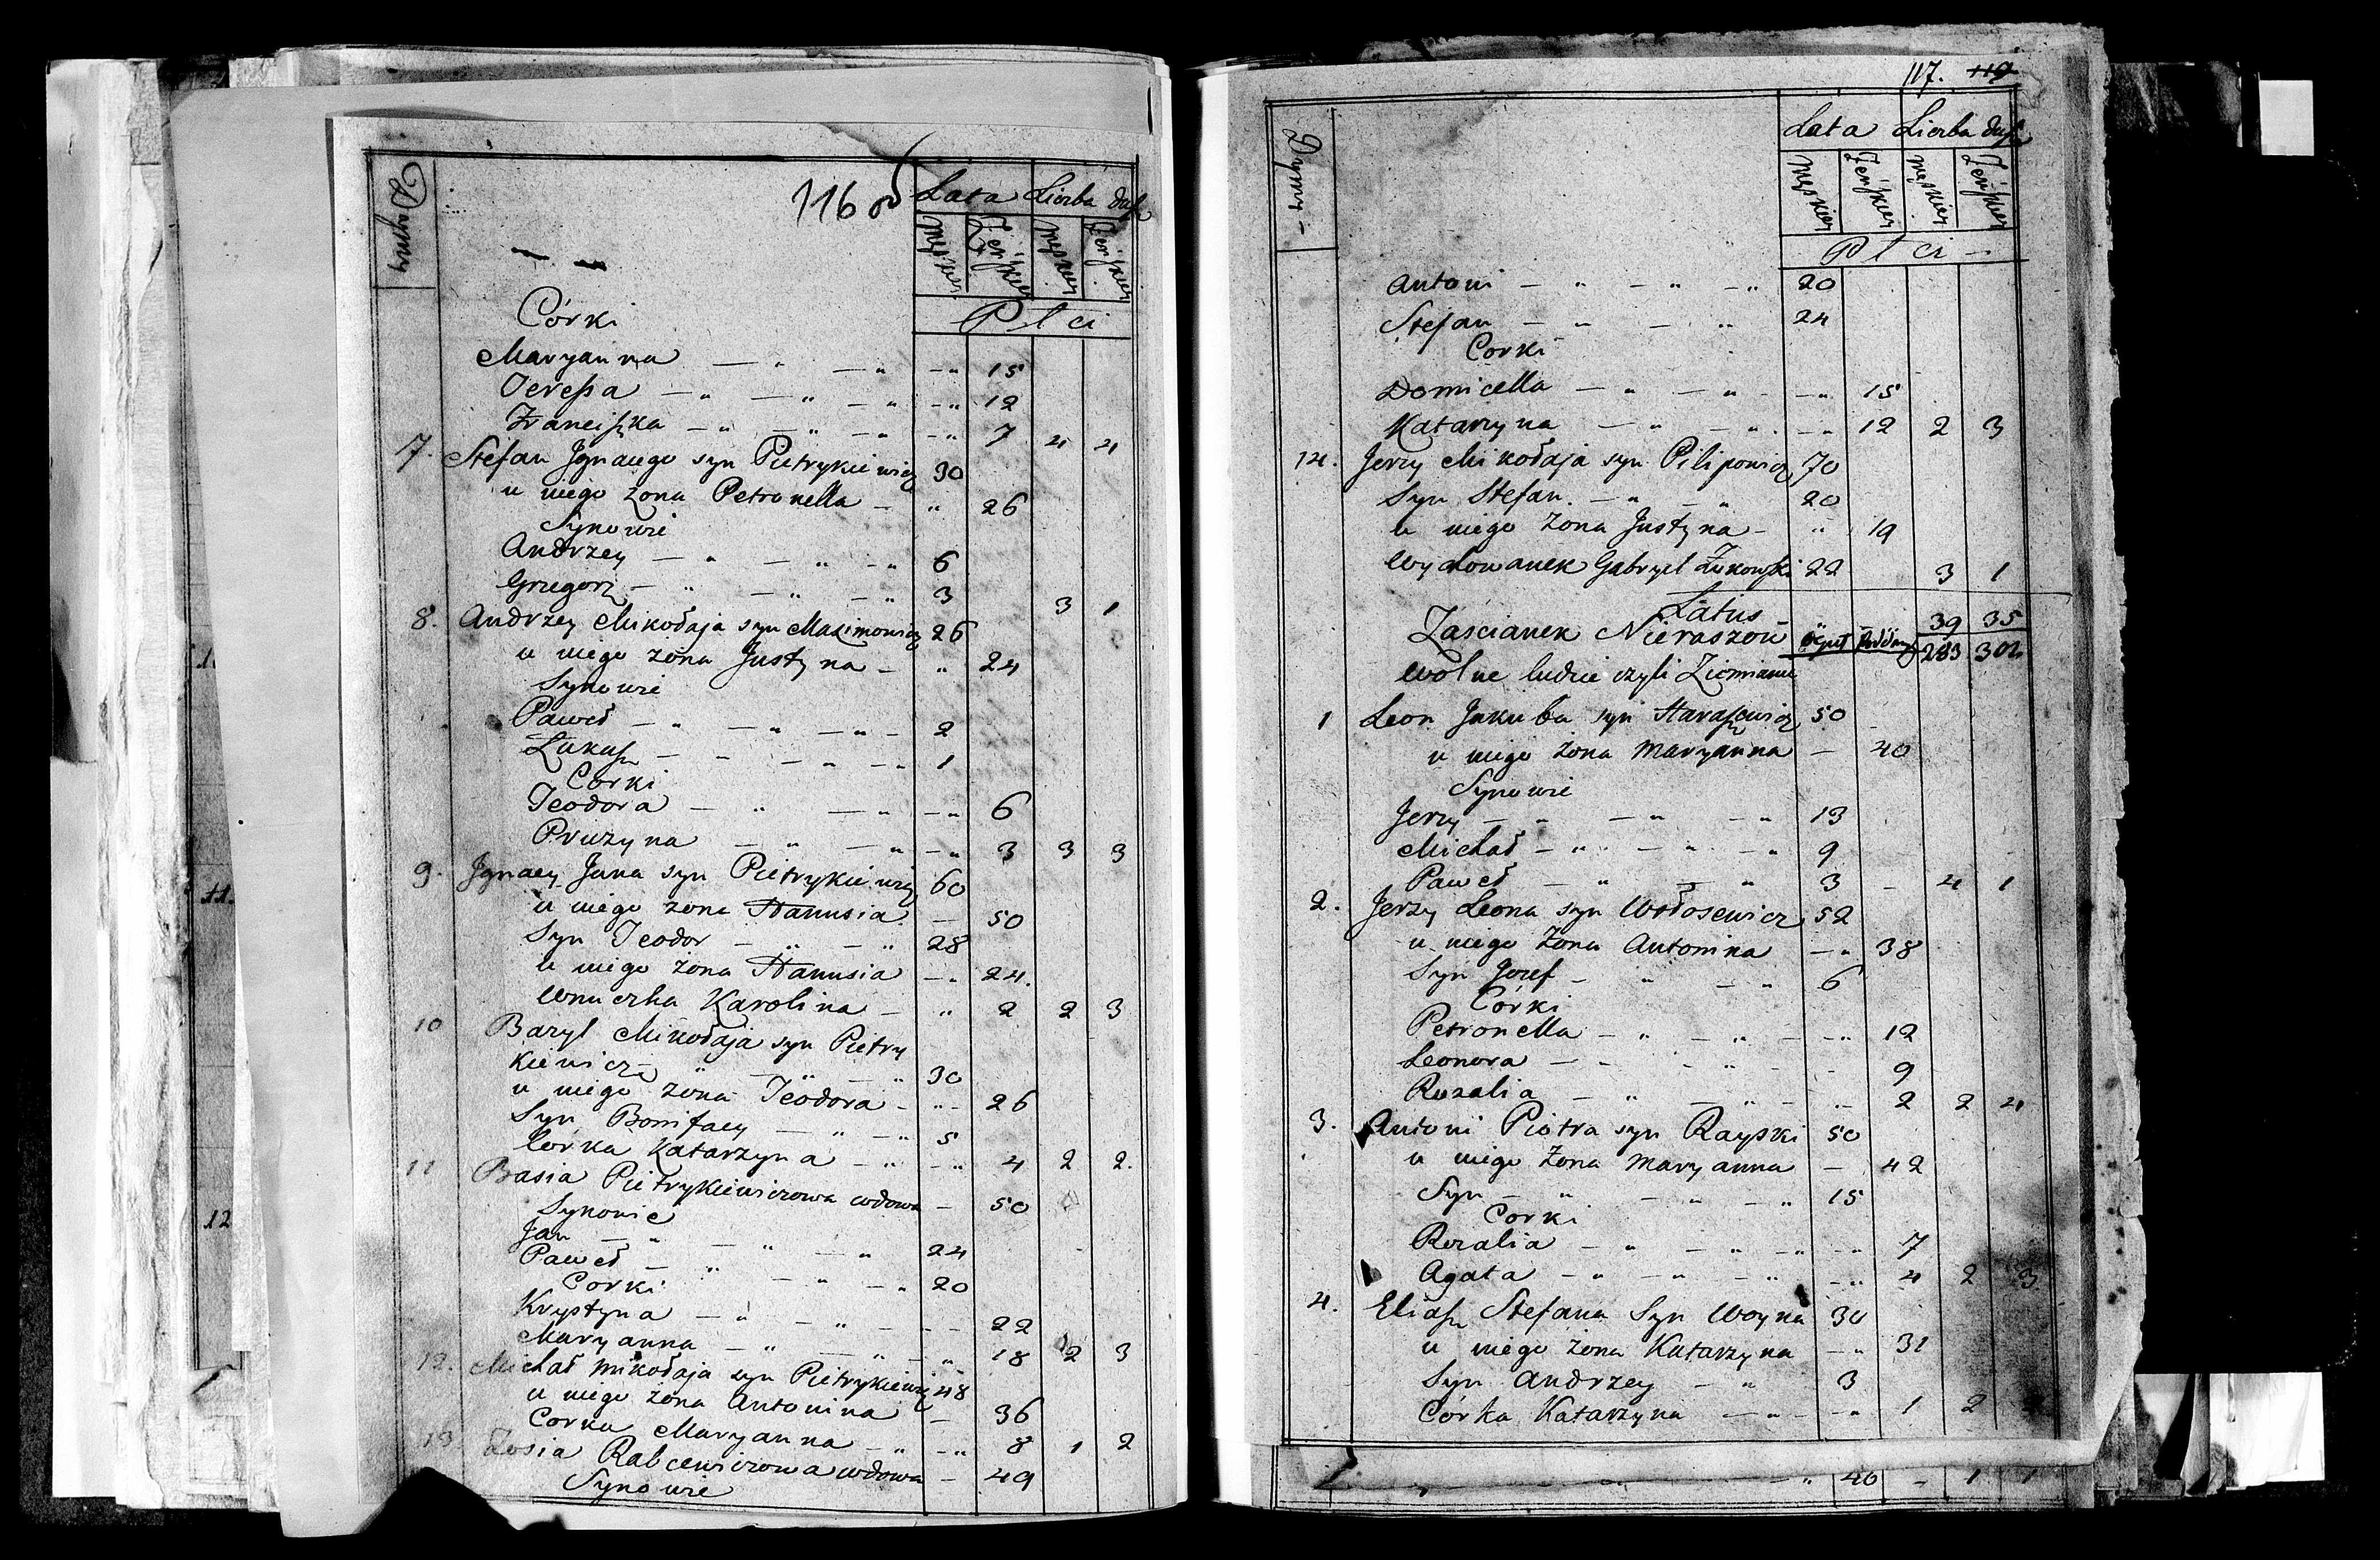 116 od
Dymy
Lata Liczba dusz
męskiey Żeńskiey męskiey Żeńskiey
Płci
Córki
Maryanna — " — " — " 15
Teressa — " — " — " — " 12
Franciszka — " — " — " — " 7 4 4
7. Stefan Jgnacego syn Pietrykiewicz 30
u niego żona Petronella — " 26
Synowie
Andrzey — " — " — " 6
Grzegorz — " — " — " 3 3 1
8. Andrzey Mikołaja syn Maximowicz 26
u niego żona Justyna — " 24
Synowie
Paweł — " — " — " — 2
Łukasz — " — " — " 1
Corki
Teodora — " — " — " 6
Pruzyna — " — " — " 3 3 3
9. Jgnacy Jana syn Pietrykiewicz 60
u niego żona Hanusia — 50
Syn Teodor — " — " 28
u niego żona Hanusia — " 24.
Wnuczka Karolina — " 2 2 3
10 Bazyl Mikołaja syn Pietry
kiewicz — " — " — " 30
u niego żona Teodora — " — 26
Syn Bonifacy — " — " 5
Corka Katarzyna — " — " 4 2 2.
11 Basia Pietrykiewiczowa wdowa — 50
Synowie
Jan — " — " — " 24
Paweł — " — " — " 20
Corki
Krystyna — " — " — — 22
Maryanna — " — " — " 18 2 3
12. Michał Mikołaja syn Pietrykiewicz 48
u niego żona Antonina — 36
Corka Maryanna — " — " 8 1 2
13 Zosia Rabcewiczowa wdowa — 49
Synowie
117. 119
Dymy —
Lata Liczba dusz
męskiey Żeńskiey męskiey Żeńskiey
Płci —
Antoni — " — " — " 20
Stefan — " — " 24
Corki
Domicella — " — " — — " 15
Katarzyna — " — " — " 12 2 3
14. Jerzy Mikołaja syn Pilipowicz 70
Syn Stefan — " — " 20
u niego żona Justyna — " 19
Wychowanek Gabryel Żukowski 22 3 1
Latus 39 35
Zaścianek Nieraszow 283 302
Wolne ludzie czyli Ziemianie
1 Leon Jakuba syn Haraszewicz 50
u niego żona Maryanna — 40
Synowie
Jerzy — " — " — " 13
Michał — " — " — " 9
Paweł — " — " 3 — 4 1
2. Jerzy Leona syn Wołosewicz 52
u niego żona Antonina — " 38
Syn Jozef — " — " 6
Córki
Petronella — " — " — — " 12
Leonora — — - " - 9
Rozalia — " — " — " 2 2 4
3. Antoni Piotra syn Rayski 50
u niego żona Maryanna — 42
Syn — " — " — " 15
Corki
Rozalia — " — " — " — " 7
Agata — " — " — " — " 4 2 3
4. Eliasz Stefana Syn Woyna 30
u niego żona Katarzyna — " 31
Syn Andrzey — " 3
Córka Katarzyna — " — — " 1 2
" 40 — 1 1
11.
12